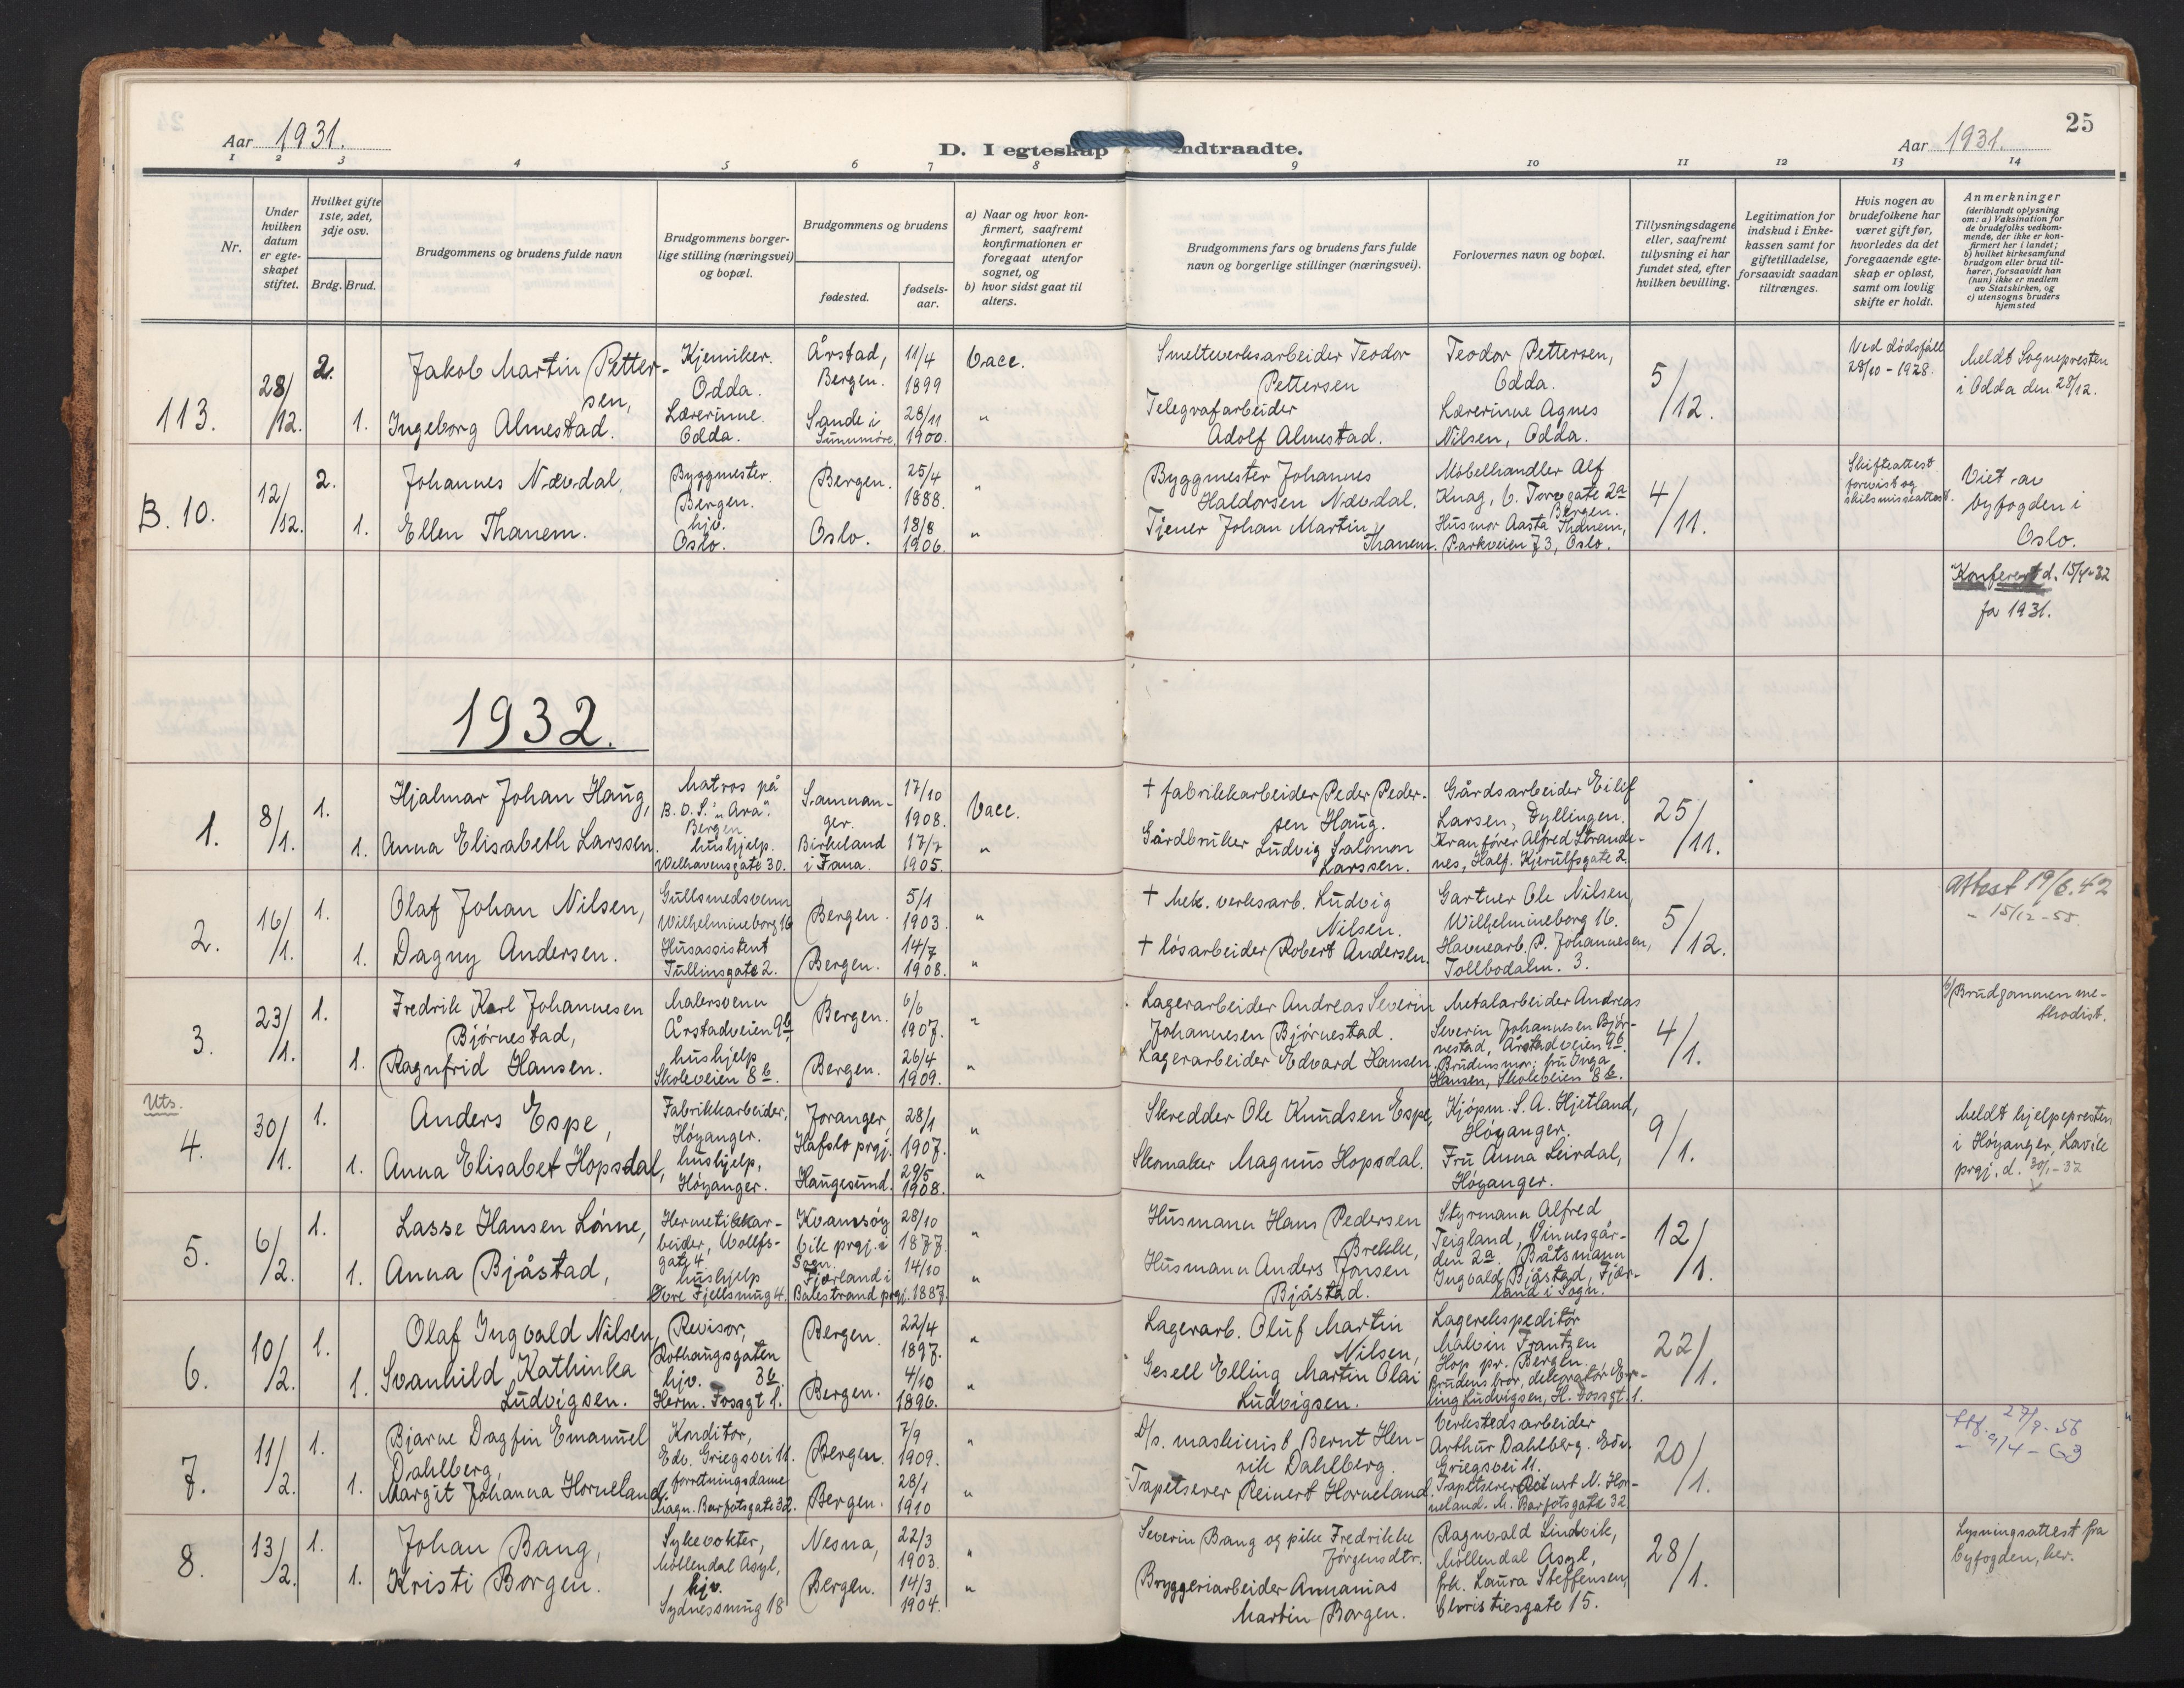 25
Aar 1931.
D. I egteskap indtraadte.
Aar 1931.
1 2 3 4 5 6 7 8 9 10 11 12 13 14
Nr.
Under hvilken datum er egteskapet stiftet.
Hvilket gifte 1ste, 2det, 3dje osv.
Brdg. Brud.
Brudgommens og brudens fulde navn
Brudgommens borgerlige stilling (næringsvei) og bopæl.
Brudgommens og brudens
fødested.
fødselsaar.
a) Naar og hvor konfirmert, saafremt konfirmationen er foregaat utenfor sognet, og
b) hvor sidst gaat til alters.
Brudgommens fars og brudens fars fulde navn og borgerlige stillinger (næringsvei).
Forlovernes navn og bopæl.
Tillysningsdagene eller, saafremt tillysning ei har fundet sted, efter hvilken bevilling.
Legitimation for indskud i Enkekassen samt for giftetilladelse, forsaavidt saadan tiltrænges.
Hvis nogen av brudefolkene har været gift før, hvorledes da det foregaaende egteskap er opløst, samt om lovlig skifte er holdt.
Anmerkninger
(deriblandt oplysning om: a) Vaksination for de brudefolks vedkommende, der ikke er konfirmert her i landet; b) hvilket kirkesamfund brudgom eller brud tilhører, forsaavidt han (hun) ikke er medlem av Statskirken, og c) utensogns bruders hjemsted
113. 28/12. 2. Jakob Martin Pettersen, Kjemiker. Odda. Årstad, Bergen. 11/4 1899 Vacc.
1. Ingeborg Almestad. Lærerinne. Odda. Sande i Sunnmøre. 28/11 1900. "
Smelteverksarbeider Teodor Pettersen
Telegrafarbeider Adolf Almestad.
Teodor Pettersen, Odda.
Lærerinne Agnes Nilsen, Odda.
5/12.
Ved dødsfall 28/10 - 1928.
Meldt Sognepresten i Odda den 28/12.
B. 10. 12/12. 2. Johannes Nævdal, Byggmester. Bergen. Bergen. 25/4 1888. "
1. Ellen Thanem. hjv. Oslo. Oslo. 18/8 1906. "
Byggmester Johannes Haldorsen Nævdal.
Tjener Johan Martin Thanem.
Møbelhandler Alf Knag, V. Torvgate 2a Bergen.
Husmor Aasta Thanem, Parkveien 73, Oslo.
4/11.
Skifteattest forevist og skilsmisseattest.
Viet av byfogden i Oslo.
Konferert d. 15/4-32
fa 1931.
1932.
1. 8/1. 1. Hjalmar Johan Haug, Matros på B.D.S. "Ara". Bergen Samnanger. 17/10 1908. Vacc.
1. Anna Elisabeth Larssen. hushjelp. Welhavensgate 30. Birkeland i Fana. 17/7 1905. "
+ fabrikkarbeider Peder Pedersen Haug.
Gårdbruker Ludvig Salomon Larssen.
Gårdsarbeider Eilif Larsen, Dyllingen.
Kranfører Alfred Strandenes, Half. Kjerulfsgate 2.
25/11.
2. 16/1. 1. Olaf Johan Nilsen, Gullsmedsvenn Wilhelmineborg 16 Bergen. 5/1 1903. "
1. Dagny Andersen. Husassistent Tullinsgate 2. Bergen. 14/7 1908. "
+ Mek. verksarb. Ludvig Nilsen.
+ løsarbeider Robert Andersen.
Gartner Ole Nilsen, Wilhelmineborg 16.
Havnearb. P. Johannesen, Tollbodalm. 3.
5/12.
Attest 19/6. 42
" 15/12 - 55.
3. 23/1. 1. Fredrik Karl Johannesen Bjørnestad, Malersvenn Årstadveien 9b Bergen. 6/6 1907. "
1. Ragnfrid Hansen. hushjelp Skoleveien 8b. Bergen. 26/4 1909. "
Lagerarbeider Andreas Severin Johannesen Bjørnestad.
Lagerarbeider Edvard Hansen.
Metalarbeider Andreas Severin Johannesen Bjørnestad, Årstadveien 9b.
Brudens mor: fru Inga Hansen, Skoleveien 8b.
4/1.
b/ Brudgommen methodist.
Uts.
4. 30/1. 1. Anders Espe, Fabrikkarbeider, Høyanger. Joranger, Hafslo prgj. 28/1 1907. "
1. Anna Elisabet Hopsdal, hushjelp, Høyanger. Haugesund. 29/5 1908. "
Skredder Ole Knudsen Espe,
Skomaker Magnus Hopsdal.
Kjøpm. S. A. Hjetland, Høyanger.
Fru Anna Leirdal, Høyanger.
9/1.
Meldt hjelpepresten i Høyanger, Lavik prgj. d. 30/1-32
5. 6/2. 1. Lasse Hansen Lønne, Hermetikkarbeider, Wollfsgate 4. Kvamsøy Vik prgj. i Sogn. 28/10 1877. "
1. Anna Bjåstad, hushjelp Øvre Fjellsmug 4. Fjærland i Balestrand prgj. 14/10 1887. "
Husmann Hans Pedersen Brekke,
Husmann Anders Jonsen Bjåstad.
Styrmann Alfred Teigland, Vinnesgården 2a. Båtsmann Ingvald Bjåstad, Fjærland i Sogn.
12/1.
6. 10/2. 1. Olaf Ingvald Nilsen, Revisor, Rothaugsgaten 3b Bergen. 22/4 1897. "
1. Svanhild Kathinka Ludvigsen. hjv. Herm. Fossgt 1. Bergen. 4/10 1896. "
Lagerarb. Oluf Martin Nilsen,
Gesell Elling Martin Olai Ludvigsen.
Lagerekspeditør Malvin Frantzen Hop pr. Bergen.
Brudens bror, dekoratør Erling Ludvigsen, H. Fossgt. 1.
22/1.
7. 11/2. 1. Bjarne Dagfin Emanuel Dahlberg, Konditor, Edv. Griegsvei 11. Bergen. 7/9 1909. "
1. Margit Johanna Horneland, forretningsdame Magn. Barfotsgate 32. Bergen. 28/1 1910 "
D/s. maskinist Bernt Henrik Dahlberg.
Trapetserer Reinert Horneland.
Verkstedsarbeider Arthur Dahlberg. Edv. Griegsvei 11.
Trapetserer Reinert N. Horneland. M. Barfotsgate 32.
20/1.
Att. 27/9-56
" 9/4 - 63
8. 13/2. 1. Johan Bang, Sykevokter, Møllendal Asyl, Nesna, 22/3 1903. "
1. Kristi Borgen. hjv. Sydnessmug 18 Bergen. 14/3 1904. "
Severin Bang og pike Fredrikke Jørgensdtr.
Bryggeriarbeider Annanias Martin Borgen.
Ragnvald Lindvik, Møllendal Asyl,
frk. Laura Steffensen, Christiesgate 15.
28/1.
Lysningsattest fra byfogden, her.